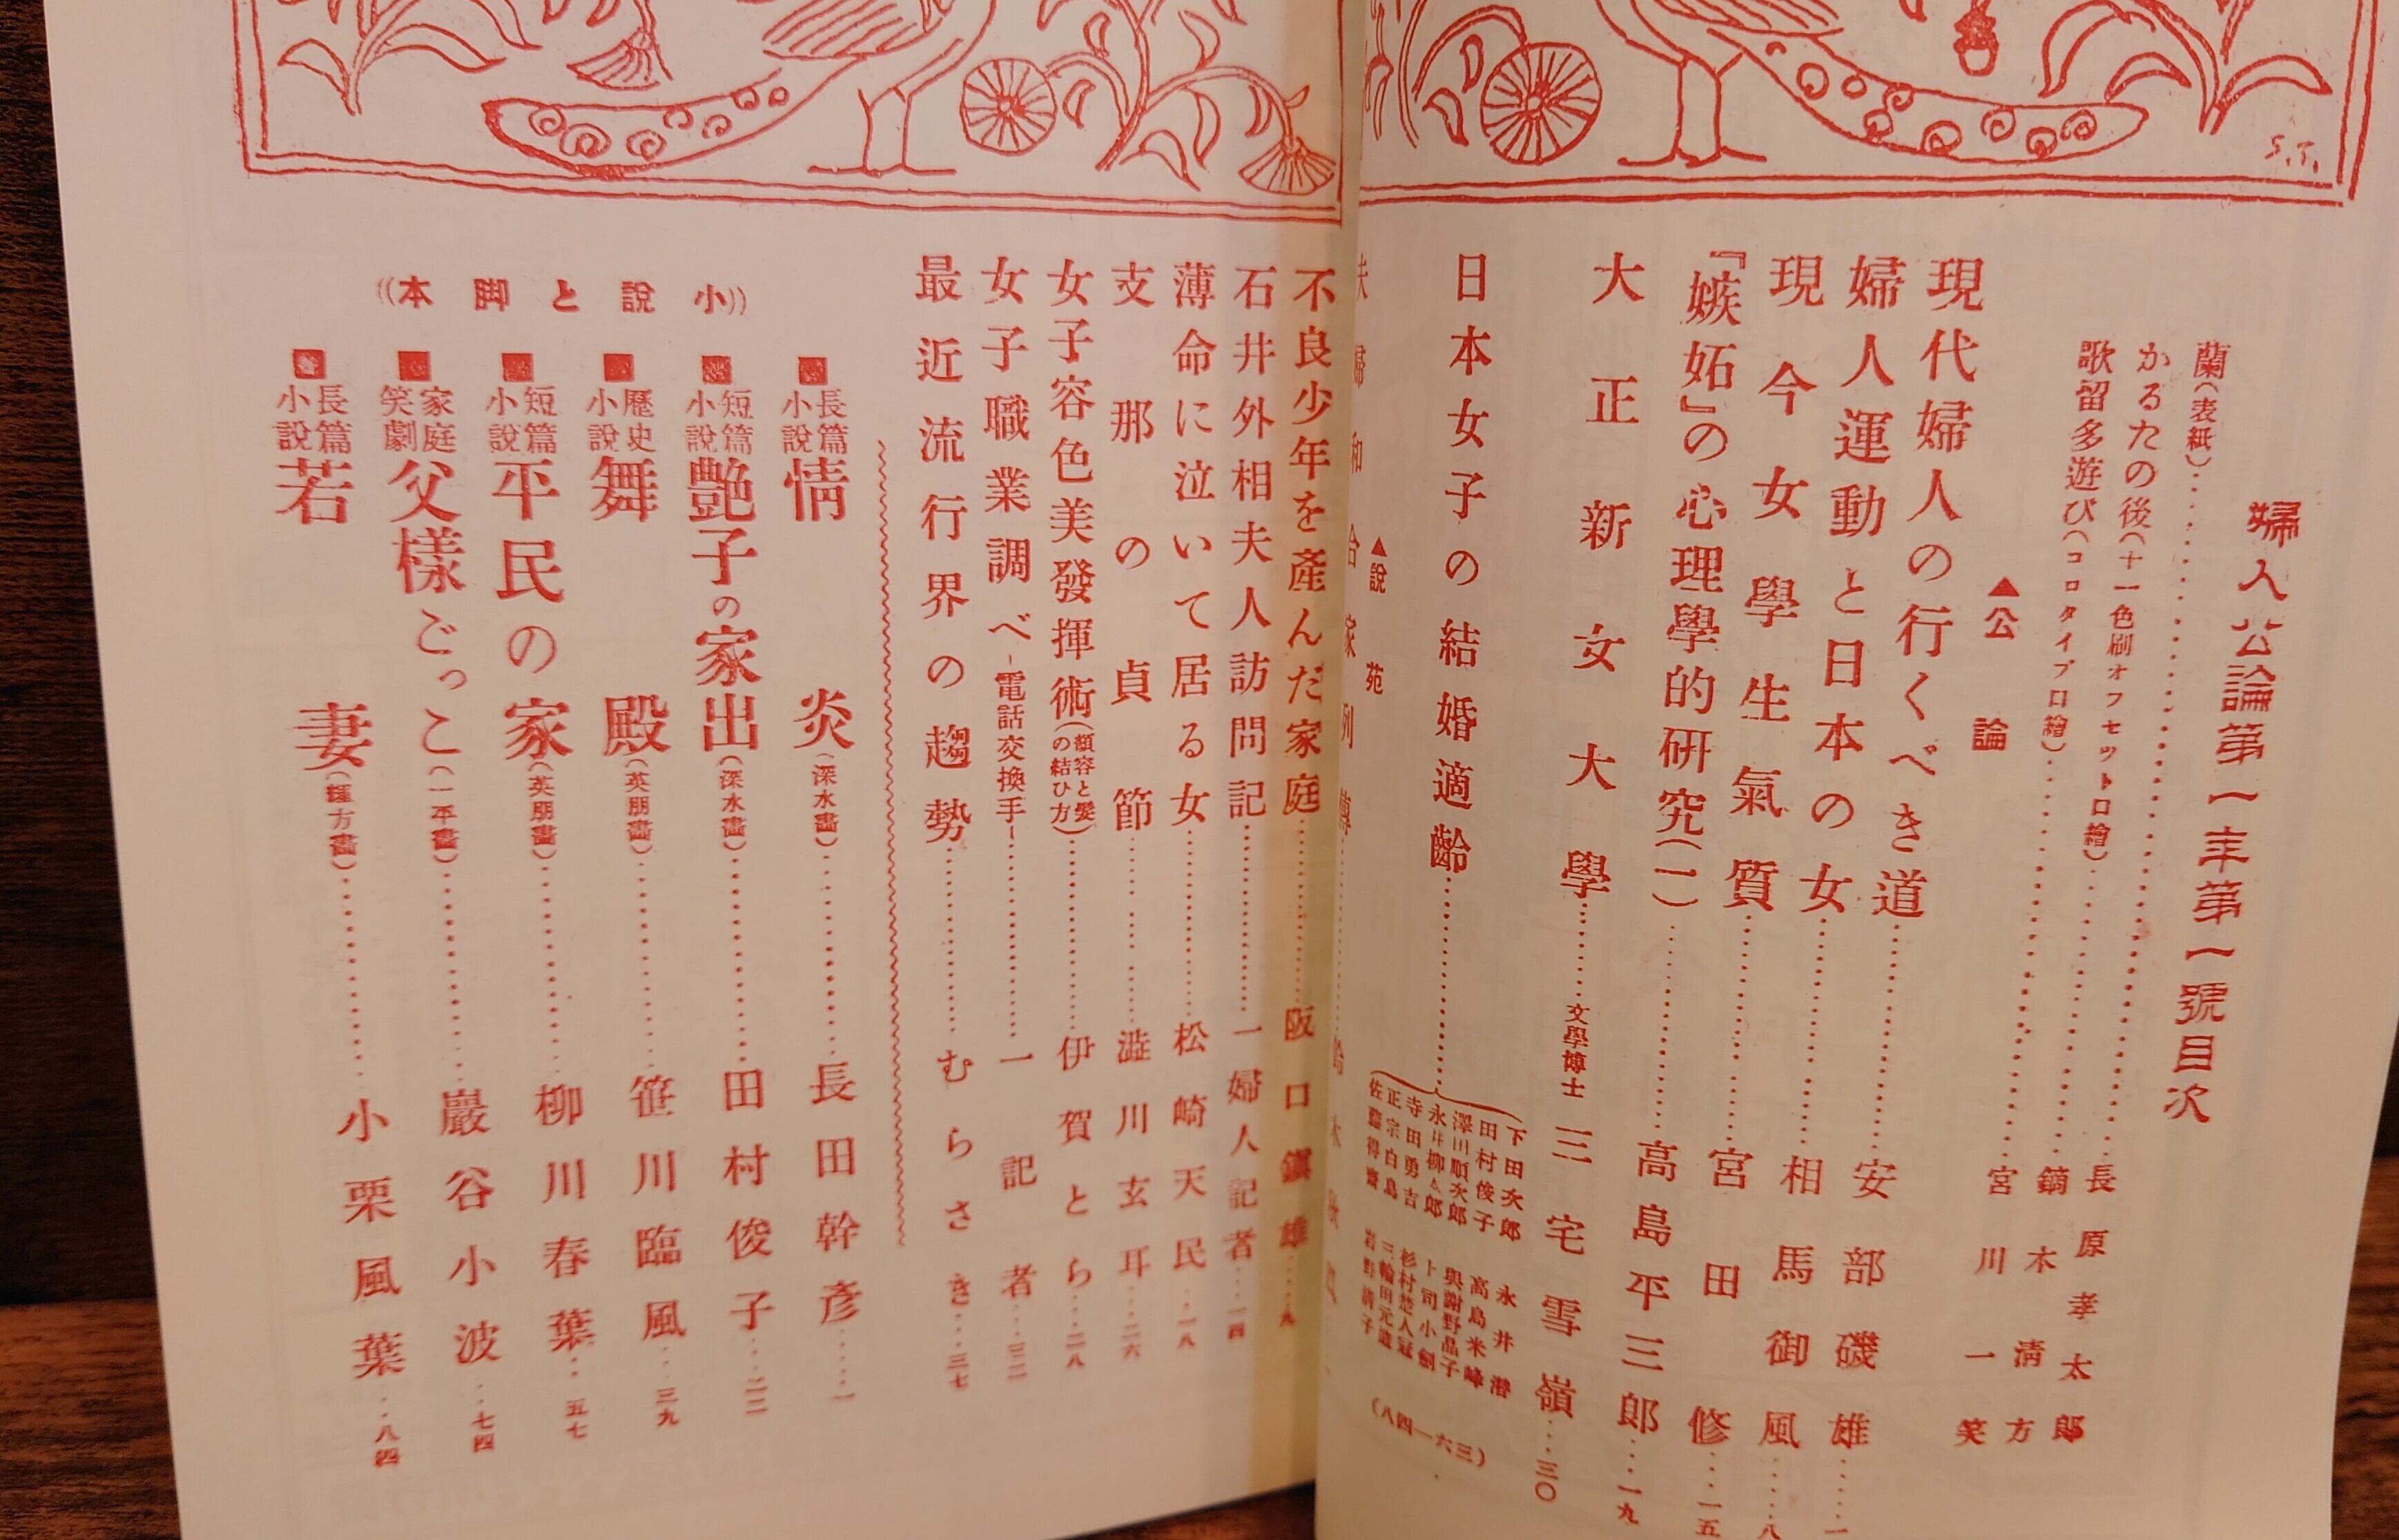 婦人公論第一年第一號目次
蘭(表紙)…………長原孝太郎
かるたの後(十一色刷オフセット口繪)…………鏑木清方
歌留多遊び(コロタイプ口繪)…………宮川一笑
▲公論
現代婦人の行くべき道…………安部磯雄……一
婦人運動と日本の女…………相馬御風……八
現今女學生氣質…………宮田修……一五
『嫉妬』の心理學的研究(一)…………高島平三郎……一九
大正新女大學…………文學博士 三宅雪嶺……三〇
日本女子の結婚適齡…………
下田次郎
田村俊子
澤田順次郎
永井柳太郎
寺田勇吉
正宗白鳥
佐藤得齋
永井潜
高島米峰
與謝野晶子
上司小劍
杉村楚人冠
三輪田元道
岩野淸子
(八四—六三)
▲說苑
不良少年を產んだ家庭…………阪口鎭雄……九
石井外相夫人訪問記…………一婦人記者……一四
薄命に泣いて居る女…………松崎天民……一八
支那の貞節…………澁川玄耳……二六
女子容色美發揮術(顏容と髮の結ひ方)…………伊賀とら……二八
女子職業調べ-電話交換手-…………一記者……三二
最近流行界の趨勢…………むらさき……三七
((小說と脚本
■長篇小說 情炎(深水畵)…………長田幹彥……一
■短篇小說 艶子の家出(深水畵)…………田村俊子……二二
■歷史小說 舞殿(英朋畵)…………笹川臨風……三九
■短篇小說 平民の家(英朋畵)…………柳川春葉……五七
■家庭笑劇 父樣ごっこ(一平畵)…………巖谷小波……七四
■長篇小說 若妻(輝方畵)…………小栗風葉……八四
S.T.